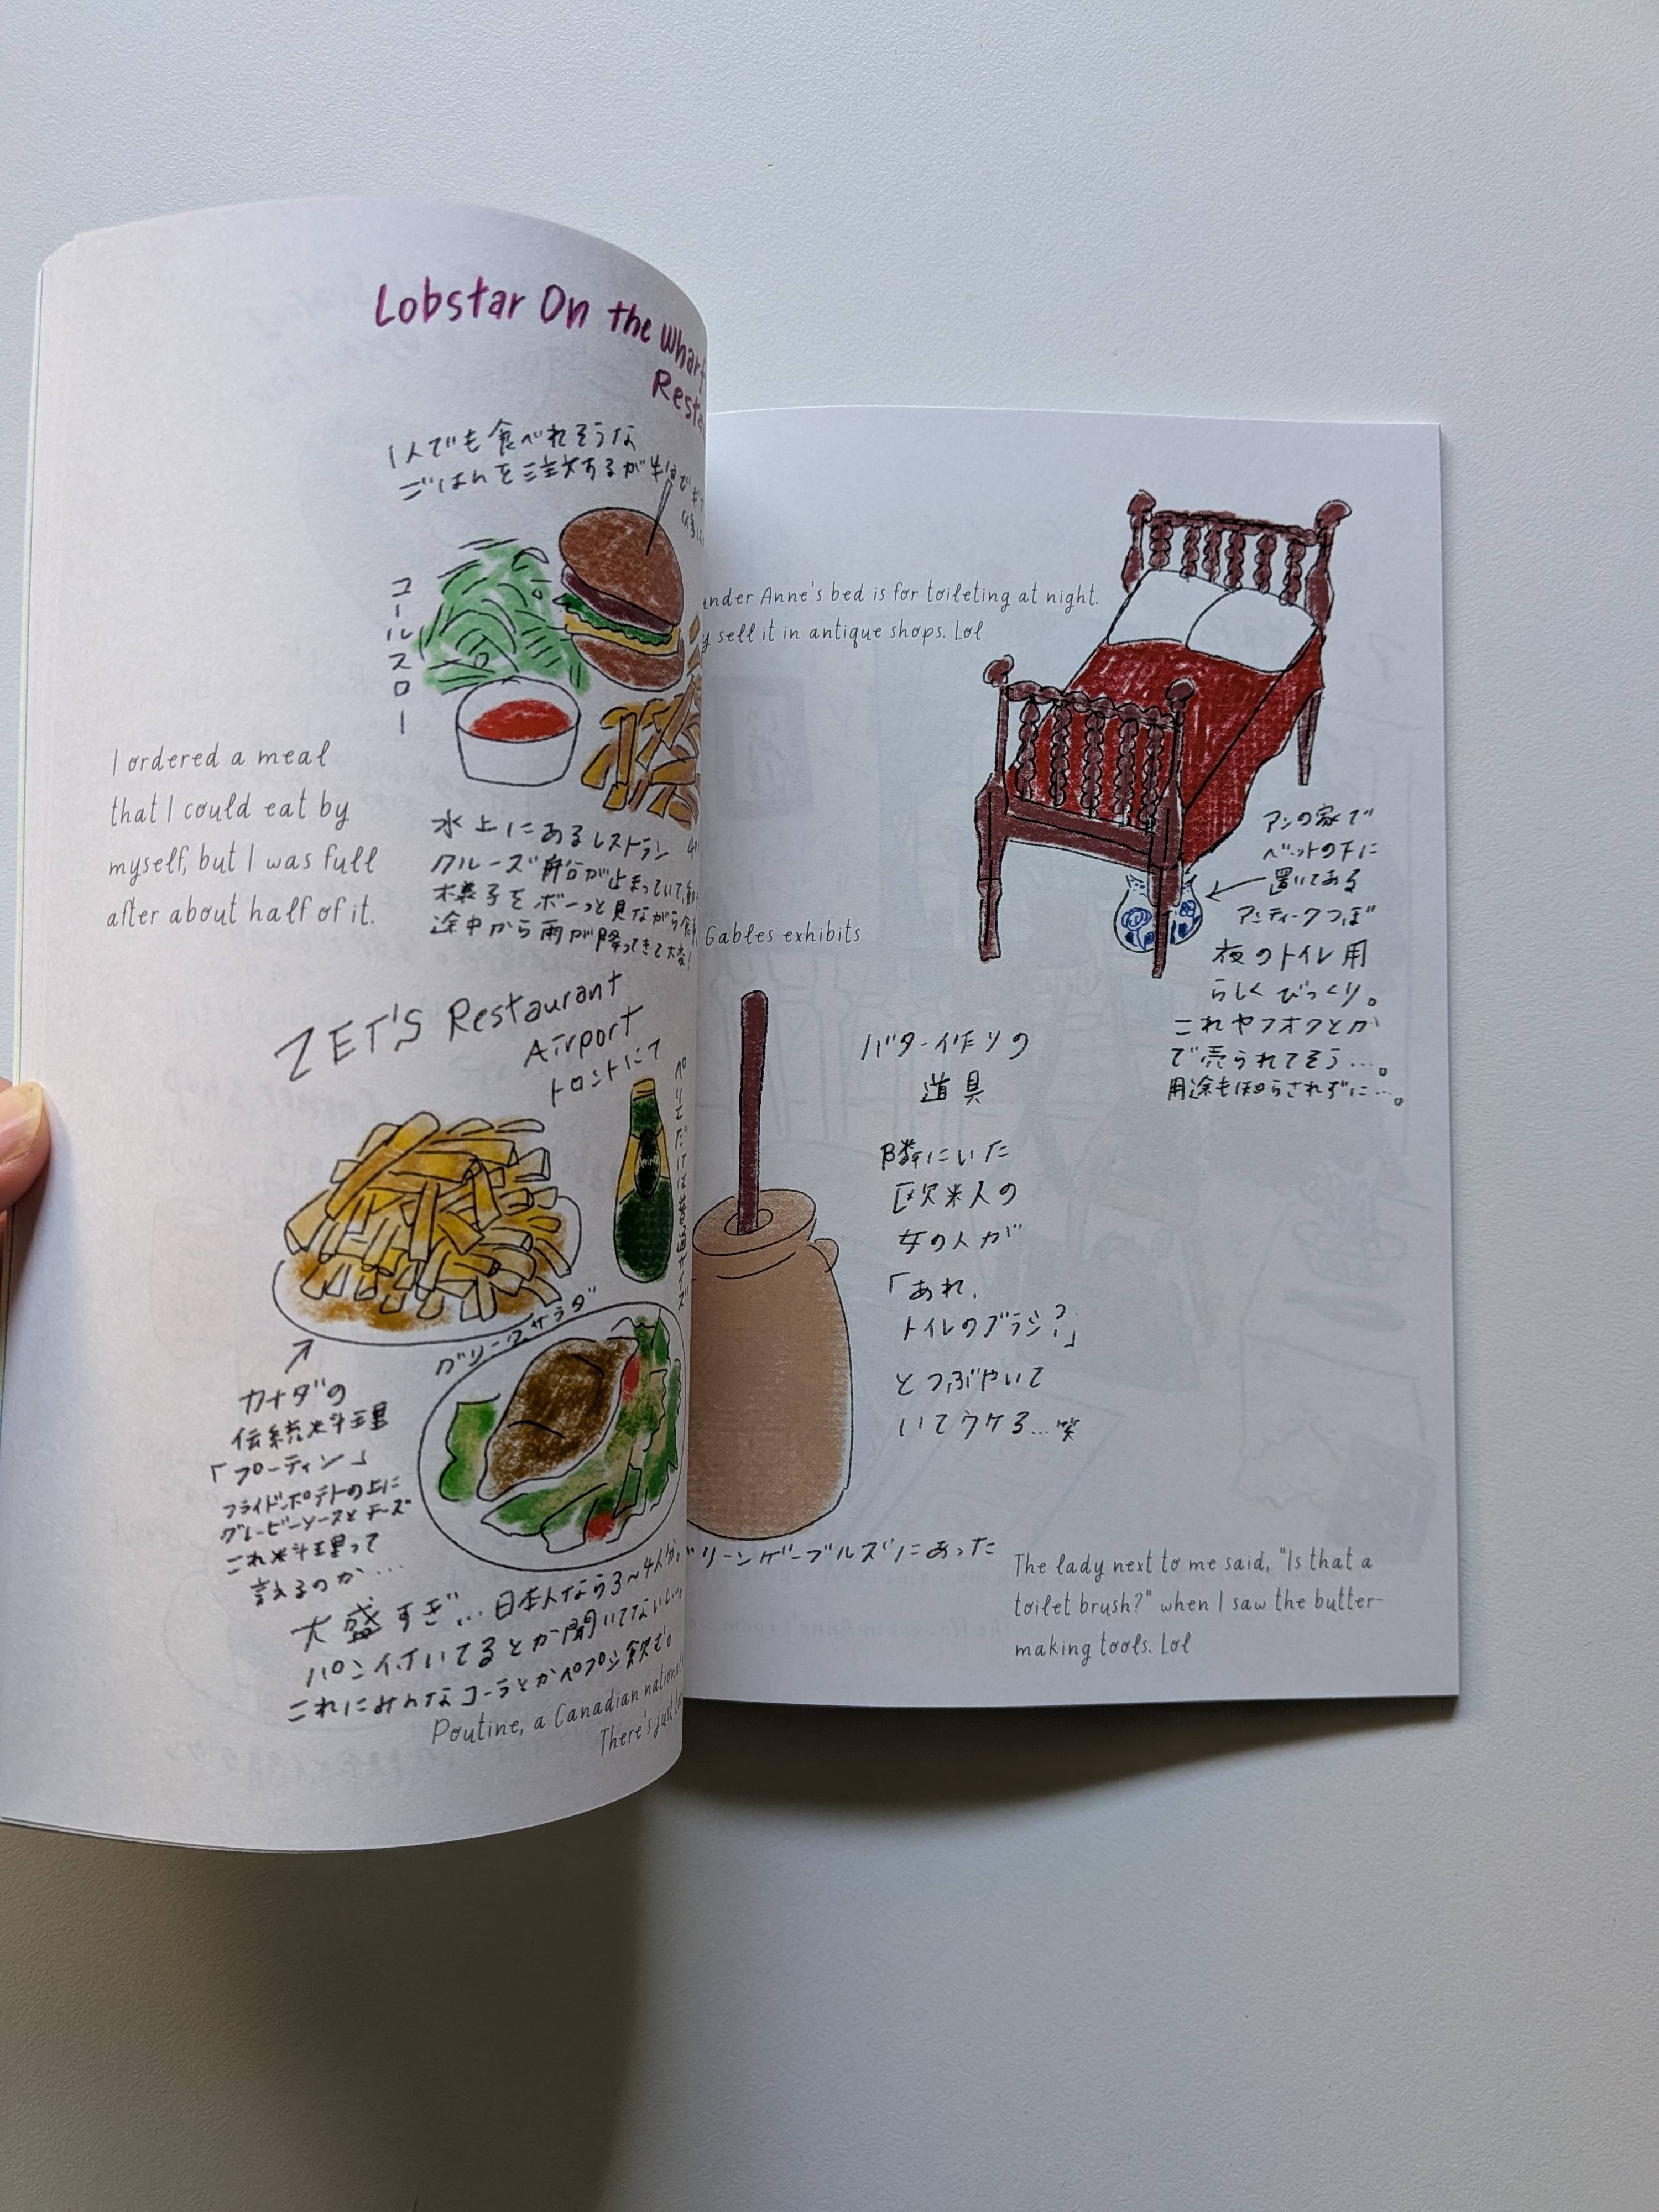 Lobstar On the Wharf
1人でも食べれそうな
ごはんを注文するが半泊で
コールスロー
I ordered a meal
that I could eat by
myself, but I was full
after about half of it.
水上にあるレストラン
クルーズ船が止まっていて、
様子をボーっと見ながら
途中から雨が降ってきて大変!
ZET'S Restaurant
Airport
トロントにて
ペリエだけは
グリーンサラダ
カナダの
伝統料理
「プーティン」
フライドポテトの上に
グレービーソースとチーズ
これ料理って
言えるのか…
大盛すぎ… 日本人なら3~4人分。
パン付いてるとか聞いてないし。
これにみんなコーラとかペプシ飲む。
Poutine, a Canadian national
There's just
under Anne's bed is for toileting at night.
sell it in antique shops. Lol
アンの家で
ベットの下に
置いてある
アンティークつぼ
夜のトイレ用
らしくびっくり。
これヤフオクとか
で売られてそう…。
用途も知らされずに…。
Gables exhibits
バター作りの
道具
隣にいた
欧米人の
女の人が
「あれ、
トイレのブラシ?」
とつぶやいて
いてウケる…笑
リーンゲーブルズにあった
The lady next to me said, "Is that a
toilet brush?" when I saw the butter-
making tools. Lol